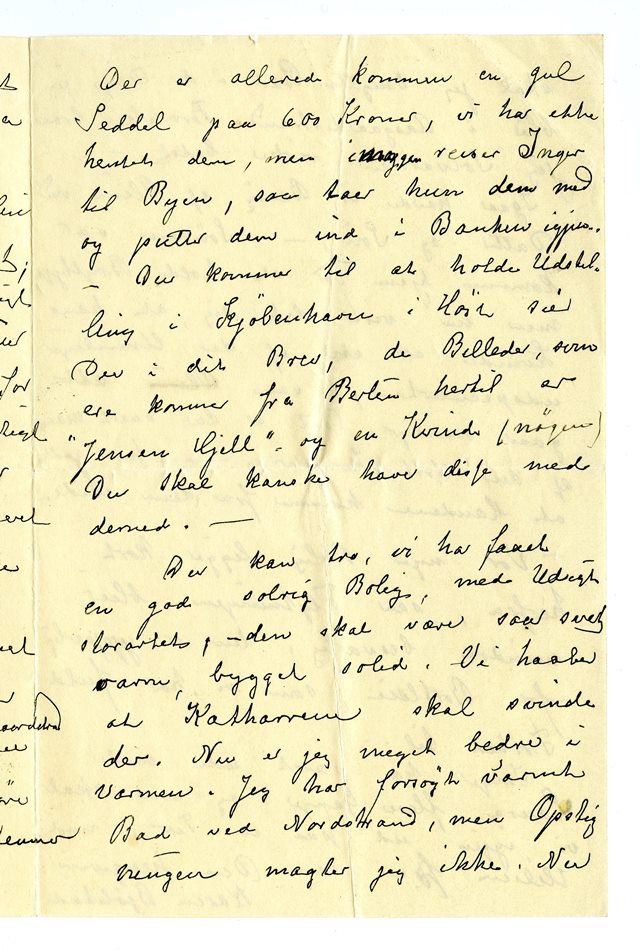 Der er allerede kommen en gul
Seddel paa 600 Kroner, vi har ikke
hentet dem, men imorgen reiser Inger
til Byen, saa taer hun dem med
og putter dem ind i Banken igjen.
– Du kommer til at holde Udstil-
ling i Kjøbenhavn i Høst sier
Du i dit Brev, de Billeder, som
ere kommen fra Berlin hertil er
"Jensen Hjell" – og en Kvinde (nøgen)
Du skal kanske have disse med
derned. –
Du kan tro, vi ha faaet
en god solrig Bolig, med Udsigt
storartet, – den skal være saa
varm, bygget solid. Vi haaber
at Katharren skal svinde
der. Nu er jeg meget bedre i
Varmen. Jeg har forsøgt varmt
Bad ved Nordstrand, men Opstig
ningen magter jeg ikke. Nu